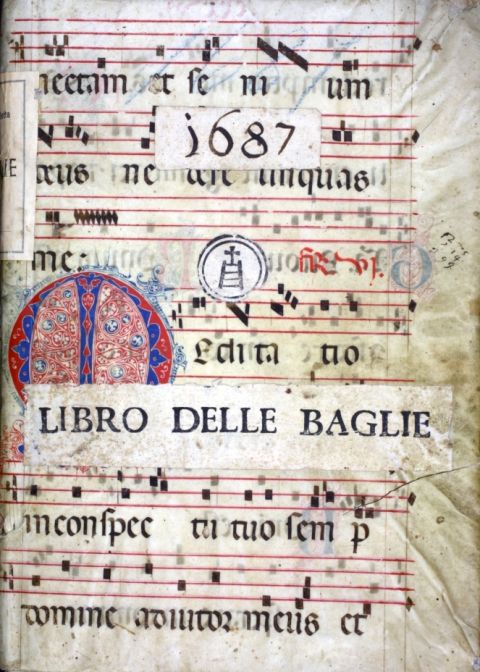 acetam et se ni um
1687
deus ne dere linquas
me:
fR vj.
Edita tio
LIBRO DELLE BAGLIE
in conspec tu tuo sem p
domine adiutor meus et